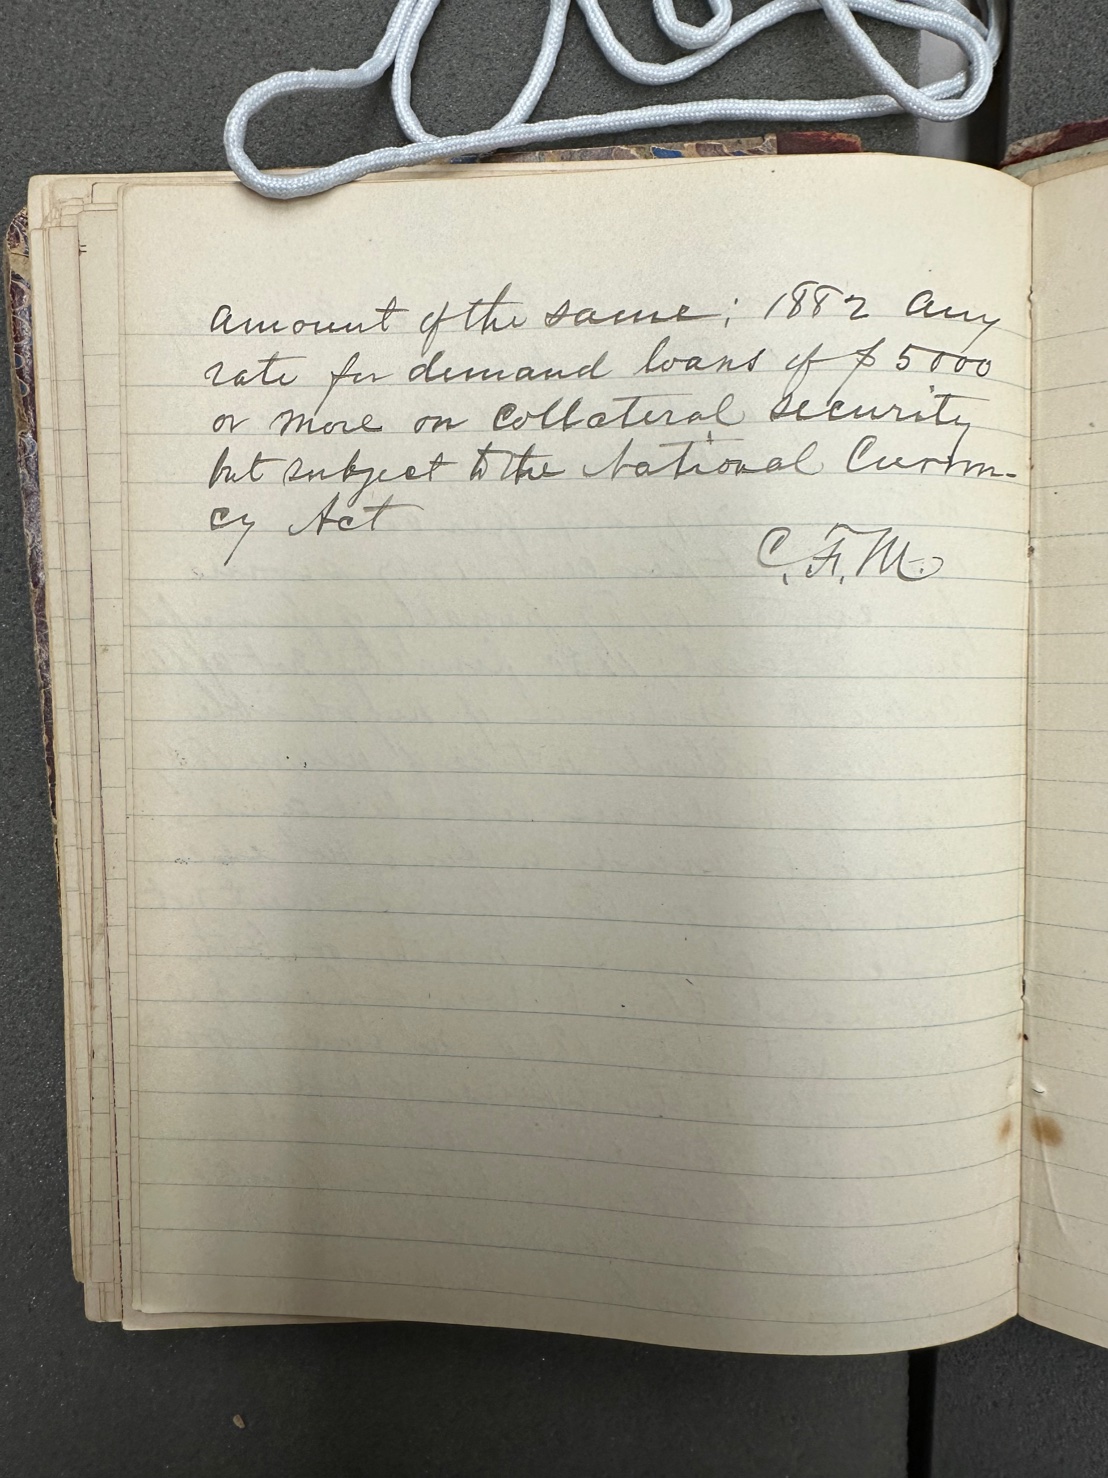 amount of the same; 1882 Any
rate for demand loans of $5000
or more on Collateral security
but subject to the National Curren-
cy Act
C. F. M.